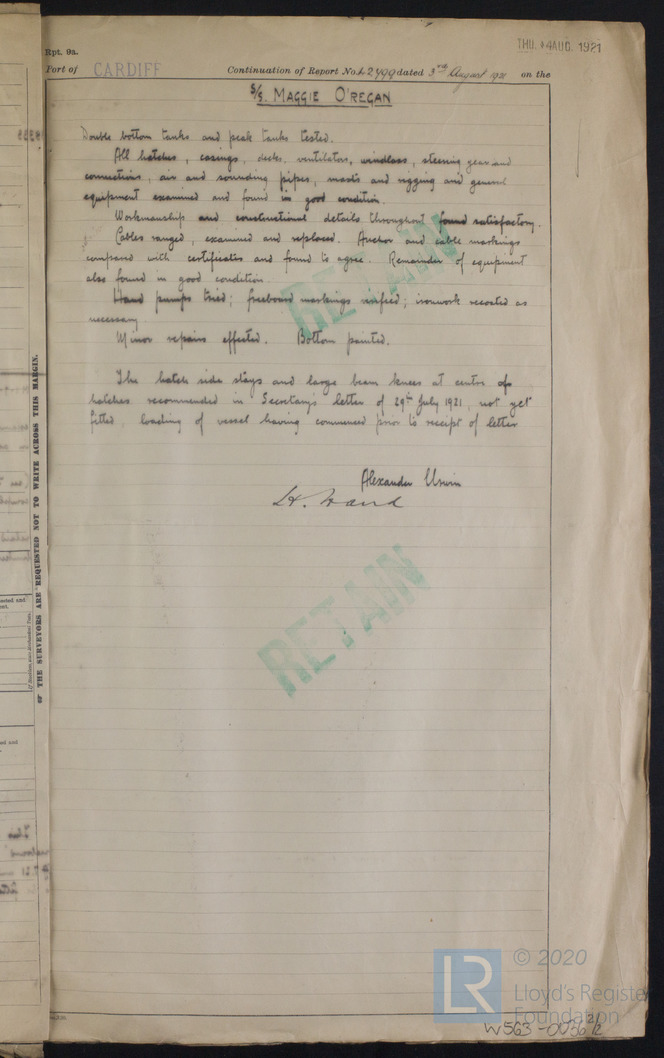 Rpt. 9a.
THU. 4 AUG. 1921
Port of CARDIFF Continuation of Report No. 42499 dated 3rd August 1921 on the
S/S. MAGGIE O'REGAN
Double bottom tanks and peak tanks tested.
All hatches, casings, decks, ventilators, windlass, steering gear and
connections, air and sounding pipes, masts and rigging and general
equipment examined and found in good condition.
Workmanship and constructional details throughout found satisfactory.
Cables ranged, examined and replaced. Anchor and cable markings
compared with certificates and found to agree. Remainder of equipment
also found in good condition.
Hand pumps tried; freeboard markings verified; ironwork recoated as
necessary
Minor repairs effected. Bottom painted.
The hatch side stays and large beam knees at centre of
hatches recommended in Secretary's letter of 29th July 1921, not yet
fitted, loading of vessel having commenced prior to receipt of letter
Alexander Urwin
H. Ward
RETAIN
RETAIN
THE SURVEYORS ARE REQUESTED NOT TO WRITE ACROSS THIS MARGIN.
LR
© 2020
Lloyd's Registe
Foundation
W563-0036 2/2